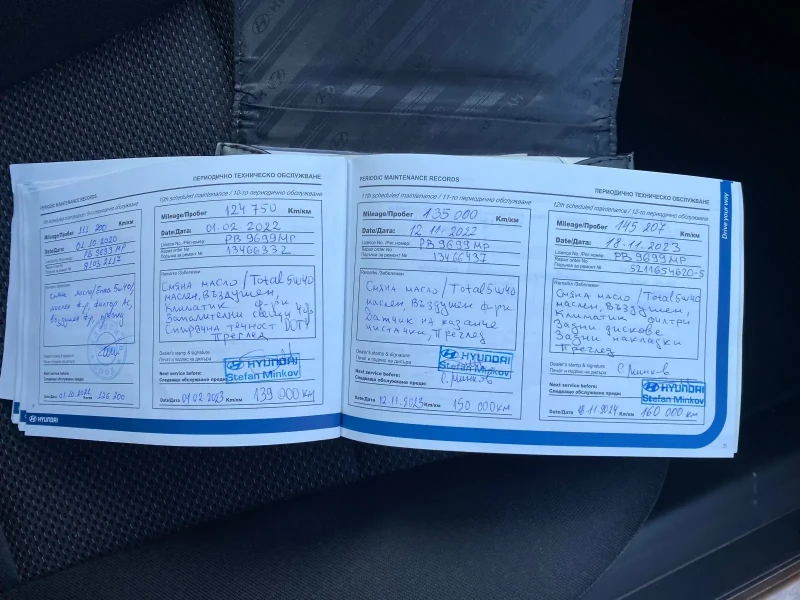 PERIODIC MAINTENANCE RECORDS
ПЕРИОДИЧНО ТЕХНИЧЕСКО ОБСЛУЖВАНЕ
Mileage/Пробег 111 200
Date/Дата: 01.10.2020
РВ 9699 МР
Remarks /Забележки:
смяна масло
Next service before:
Следващо обслужване преди:
Date/Дата 01.10.2021
HYUNDAI
10th scheduled maintenance / 10-то периодично обслужване
Mileage/Пробег 124 750 Km/км
Date/Дата: 01.02.2022
Licence No. /Рег. номер: РВ 9699МР
Repair order No
Поръчка за ремонт № 13466332
Remarks /Забележки:
Смяна масло / Total 5w40
маслен, Въздушен,
Климатик ф-ри
Запалителни свещи 4бр
Спирачна течност DOT4
Преглед
Dealer's stamp & signature
Печат и подпис на дилъра
HYUNDAI
Stefan Minkov
Next service before:
Следващо обслужване преди:
Date/Дата 01.02.2023 Km/км 139 000 км
PERIODIC MAINTENANCE RECORDS
ПЕРИОДИЧНО ТЕХНИЧЕСКО ОБСЛУЖВАНЕ
11th scheduled maintenance / 11-то периодично обслужване
Mileage/Пробег 135 000 Km/км
Date/Дата: 12.11.2022
Licence No. /Рег. номер: РВ 9699МР
Repair order No
Поръчка за ремонт № 13466437
Remarks /Забележки:
Смяна масло / Total 5w40
маслен, Въздушен ф-ри
Датчик на казанче
чистачки, Преглед
Dealer's stamp & signature
Печат и подпис на дилъра
HYUNDAI
Stefan Minkov
С. Минков
Next service before:
Следващо обслужване преди:
Date/Дата 12.11.2023 Km/км 150 000 км
12th scheduled maintenance / 12-то периодично обслужване
Mileage/Пробег 145 207 Km/км
Date/Дата: 18.11.2023
Licence No. /Рег. номер: РВ 9699МР
Repair order No
Поръчка за ремонт № 5211654620-5
Remarks /Забележки:
Смяна масло / Total 5w40
маслен, Въздушен,
Климатик филтри
Задни дискове
Задни накладки
Преглед
Dealer's stamp & signature
Печат и подпис на дилъра
С. Минков
HYUNDAI
Stefan Minkov
Next service before:
Следващо обслужване преди:
Date/Дата 18.11.2024 Km/км 160 000 км
Drive your way